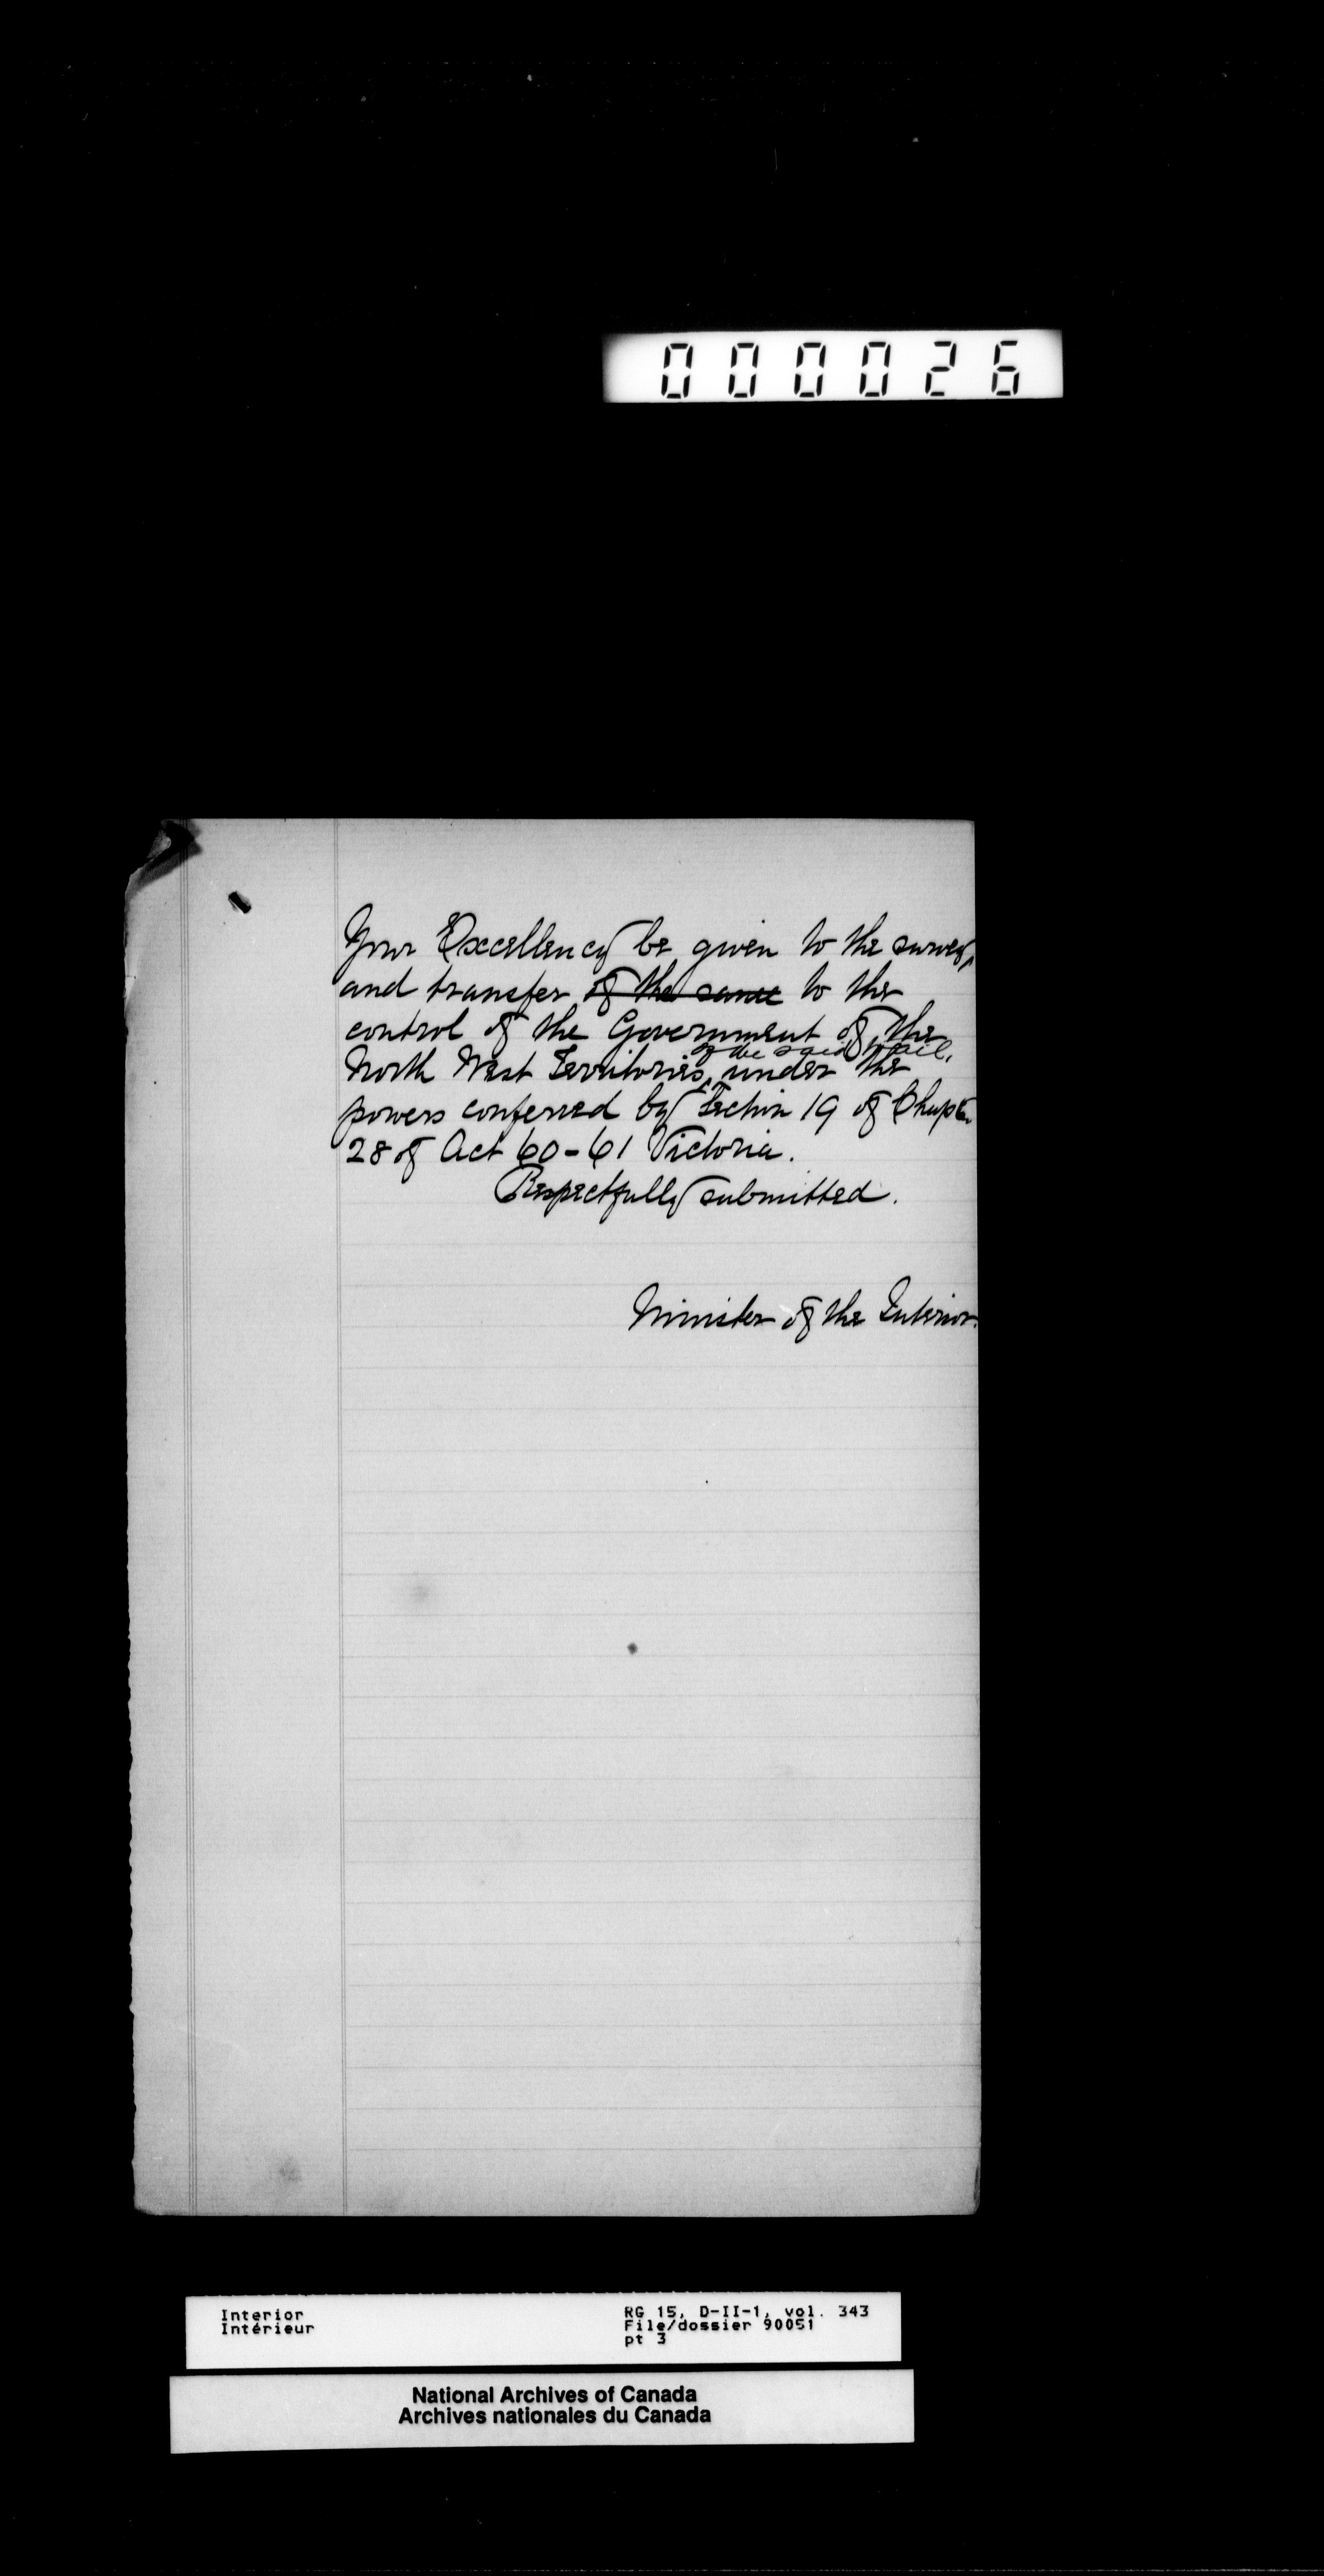 000026
Your Excellency be given to the survey,
and transfer of the same to the
control of the Government of the
of the said trail,
North West Territories, under the
powers conferred by Section 19 of Chapter
28 of Act 60-61 Victoria.
Respectfully submitted.
Minister of the Interior.
Interior
Intérieur
RG 15, D-II-1, vol. 343
File/dossier 90051
pt 3
National Archives of Canada
Archives nationales du Canada